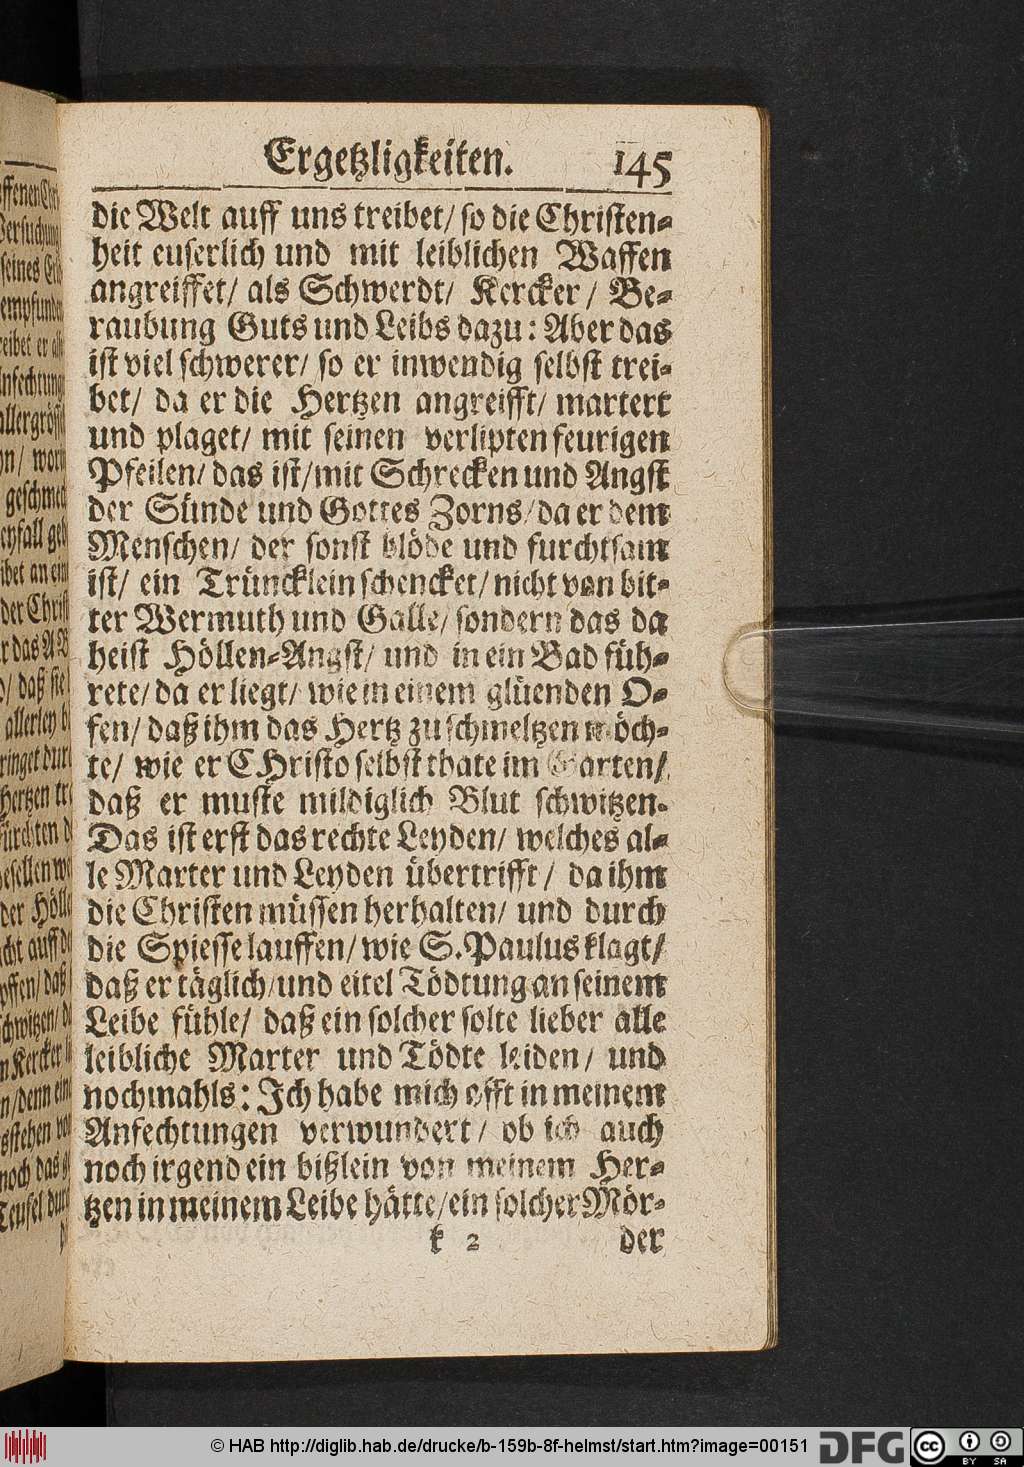 Ergetzligkeiten. 145
die Welt auff uns treibet/ so die Christen-
heit euserlich und mit leiblichen Waffen
angreiffet/ als Schwerdt/ Kercker/ Be-
raubung Guts und Leibs dazu: Aber das
ist viel schwerer/ so er inwendig selbst trei-
bet/ da er die Hertzen angreifft/ martert
und plaget/ mit seinen verlipten feurigen
Pfeilen/ das ist/ mit Schrecken und Angst
der Sünde und Gottes Zorns/ da er dem
Menschen/ der sonst blöde und furchtsam
ist/ ein Trüncklein schencket/ nicht von bit-
ter Wermuth und Galle/ sondern das da
heist Höllen-Angst/ und in ein Bad füh-
rete/ da er liegt/ wie in einem glüenden O-
fen/ daß ihm das Hertz zuschmeltzen möch-
te/ wie er CHristo selbst thate im Garten/
daß er muste mildiglich Blut schwitzen.
Das ist erst das rechte Leyden/ welches al-
le Marter und Leyden übertrifft/ da ihm
die Christen müssen herhalten/ und durch
die Spiesse lauffen/ wie S. Paulus klagt/
daß er täglich/ und eitel Tödtung an seinem
Leibe fühle/ daß ein solcher solte lieber alle
leibliche Marter und Tödte leiden/ und
nochmahls: Ich habe mich offt in meinem
Anfechtungen verwundert/ ob ich auch
noch irgend ein bißlein von meinem Her-
tzen in meinem Leibe hätte/ ein solcher Mör-
k 2 der
© HAB http://diglib.hab.de/drucke/b-159b-8f-helmst/start.htm?image=00151 DFG cc BY SA